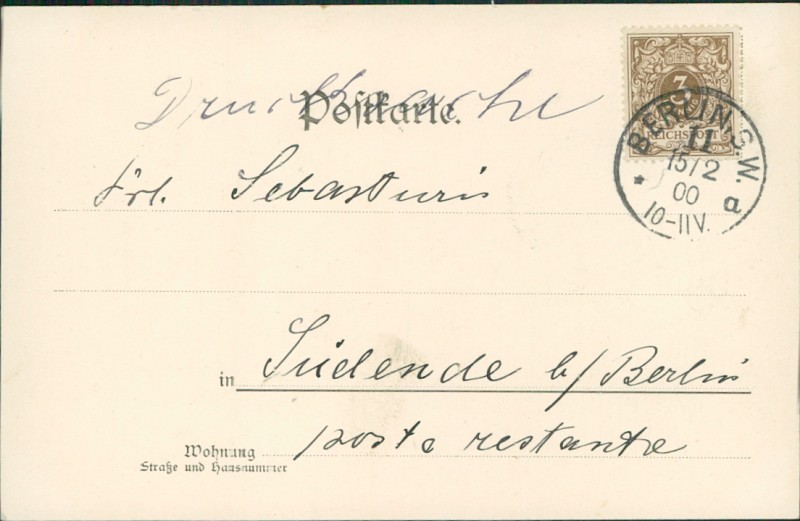 3
REICHSPOST
BERLIN S.W.
11
15/2
00
10-11V.
* a
Drucksache
Postkarte.
Frl. Sebasturis
in Südende b/Berlin
poste restante
Wohnung
Straße und Hausnummer